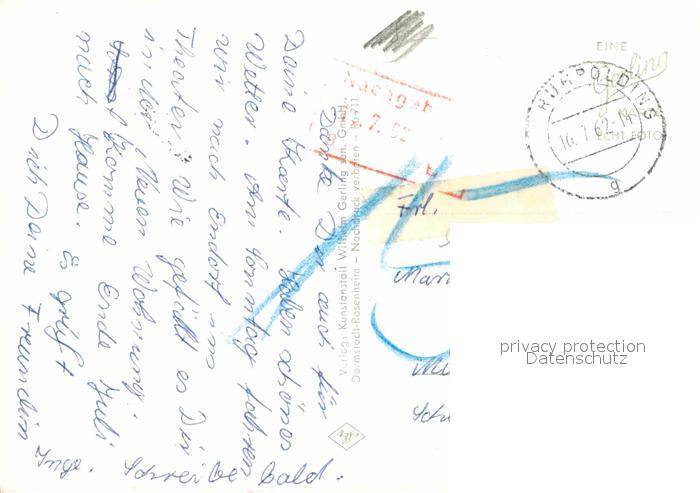 Danke Dir auch für
Deine Karte. Haben schönes
Wetter. Am Sonntag fahren
wir nach Endorf ins
Theater. Wie gefällt es Dir
in der Neuen Wohnung.
Komme Ende Juli
nach Hause. Es grüßt
Dich Deine Freundin
Inge. Schreibe bald.
Verlag: Kunstanstalt Wilhelm Gerling sen. GmbH.
Darmstadt-Rosenheim — Nachdruck verboten — Ro 711
Nachgeb
7. 62
EINE
Gerling
ECHT FOTO
RUHPOLDING
16. 7. 62 - 14
g
Frl.
privacy protection
Datenschutz